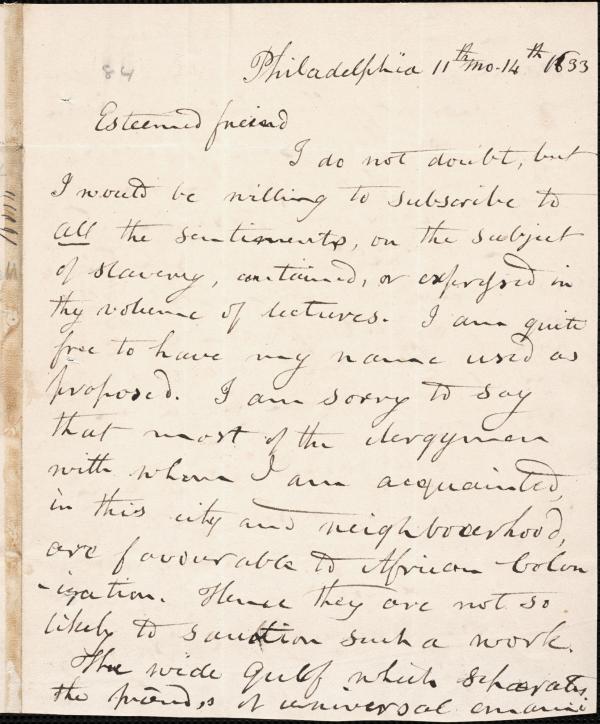 84
Philadelphia 11th mo. 14th 1833
Esteemed friend
I do not doubt, but
I would be willing to subscribe to
all the sentiments, on the subject
of slavery, contained, or expressed in
thy volume of lectures. I am quite
free to have my name used as
proposed. I am sorry to say
that most of the clergymen
with whom I am acquainted,
in this city and neighbourhood,
are favourable to African Colon
-ization. Hence they are not so
likely to sanction such a work.
The wide gulf which separates
the friends of universal emanci